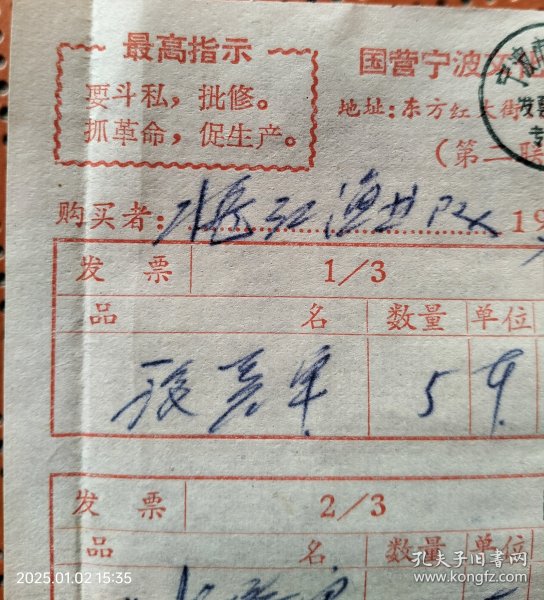 最高指示
要斗私，批修。
抓革命，促生产。
国营宁波
地址：东方红大街
（第二联
发票
购买者：江渔业队 19
发票 1/3
品名 数量 单位
5
发票 2/3
品名 数量 单位
2025.01.02 15:35
孔夫子旧书网
www.kongfz.com